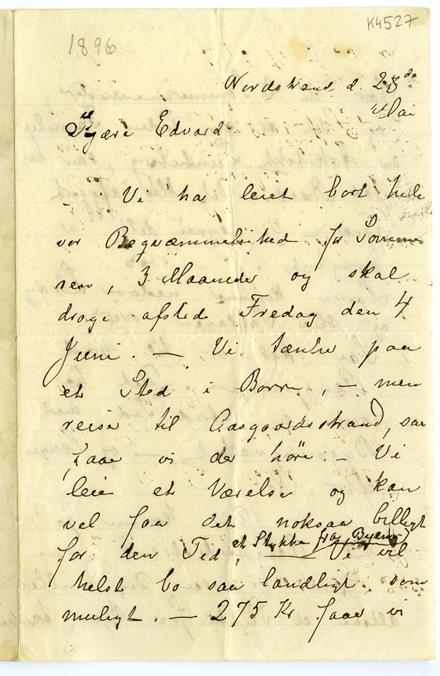 1896
K4527
Nordstrand d. 28de
Mai
Kjære Edvard
Vi ha leiet bort hele
vor Beqvæmmelighed for Somme
ren, 3 Maaneder og skal
drage afsted Fredag den 4
Juni. — Vi tænke paa
et Sted i Borre, — men
reise til Aasgaardsstrand, saa
faae vi da höre — Vi
leie et Værelse og kan
vel faa det noksaa billigt
for den Tid, et Stykke fra Byen Vi vil
helst bo saa landligt som
muligt. — 275 Kr faae vi